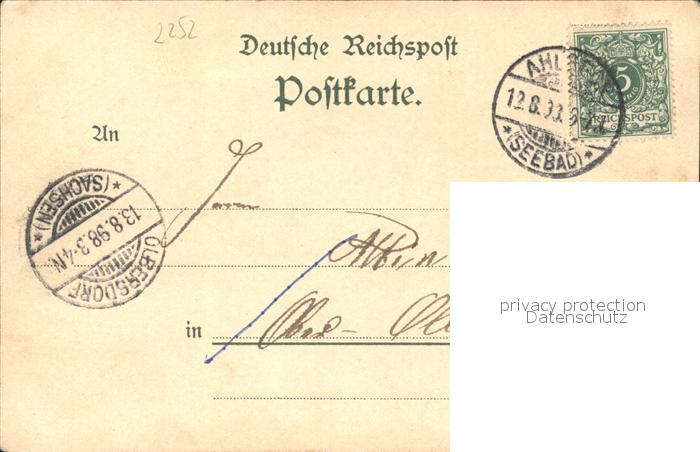 2252
Deutsche Reichspost
Postkarte.
AHLBECK
12.8.98.
*(SEEBAD)*
5
REICHSPOST
An
Herrn
*(SACHSEN)*
13.8.98.3-4N.
OLBERSDORF
Albin
in
Ober-
privacy protection
Datenschutz